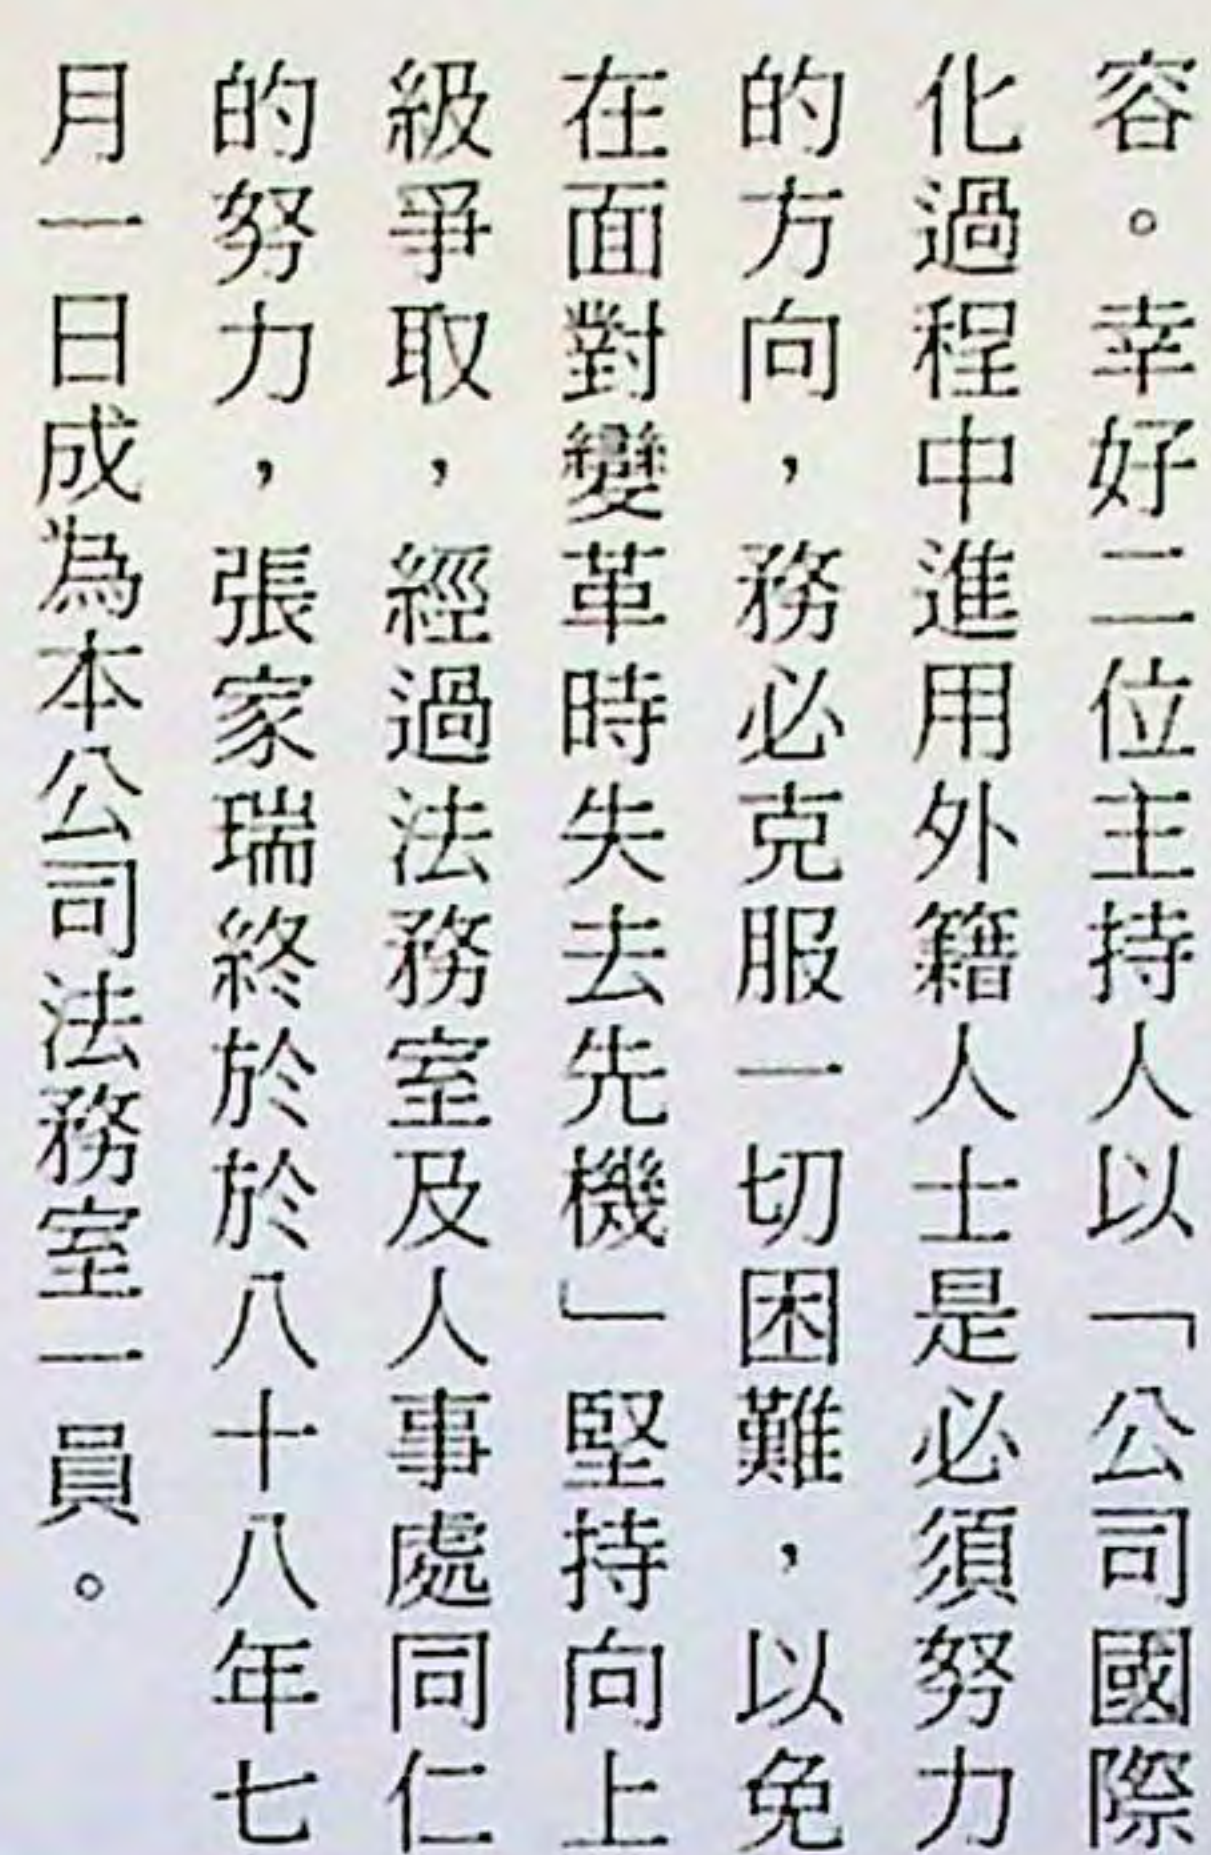 容。幸好二位主持人以「公司國際
化過程中進用外籍人士是必須努力
的方向，務必克服一切困難，以免
在面對變革時失去先機」堅持向上
級爭取，經過法務室及人事處同仁
的努力，張家瑞終於於八十八年七
月一日成為本公司法務室一員。